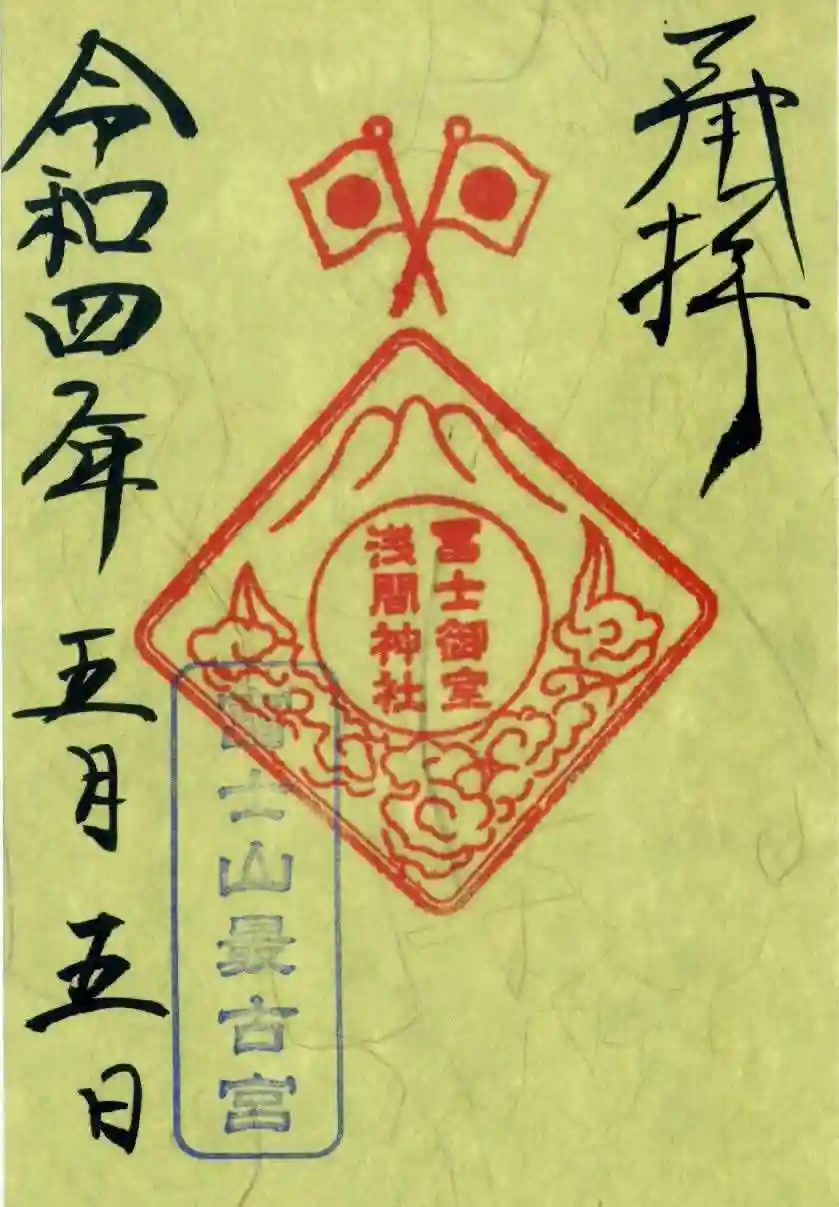 奉拝
冨士御室
浅間神社
冨士山最古宮
令和四年 五月 五日